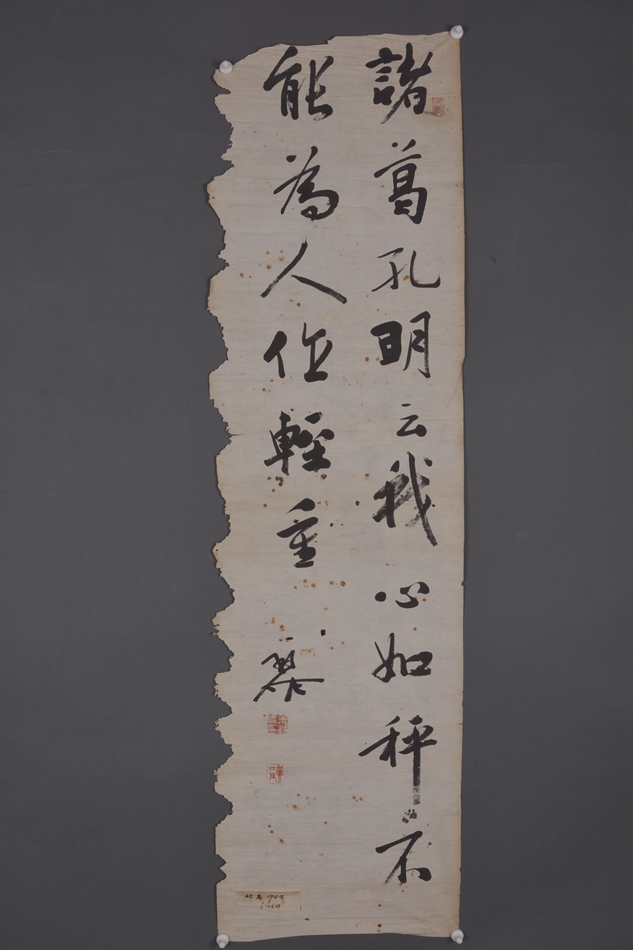 諸葛孔明云我心如秤不
能為人作輕重